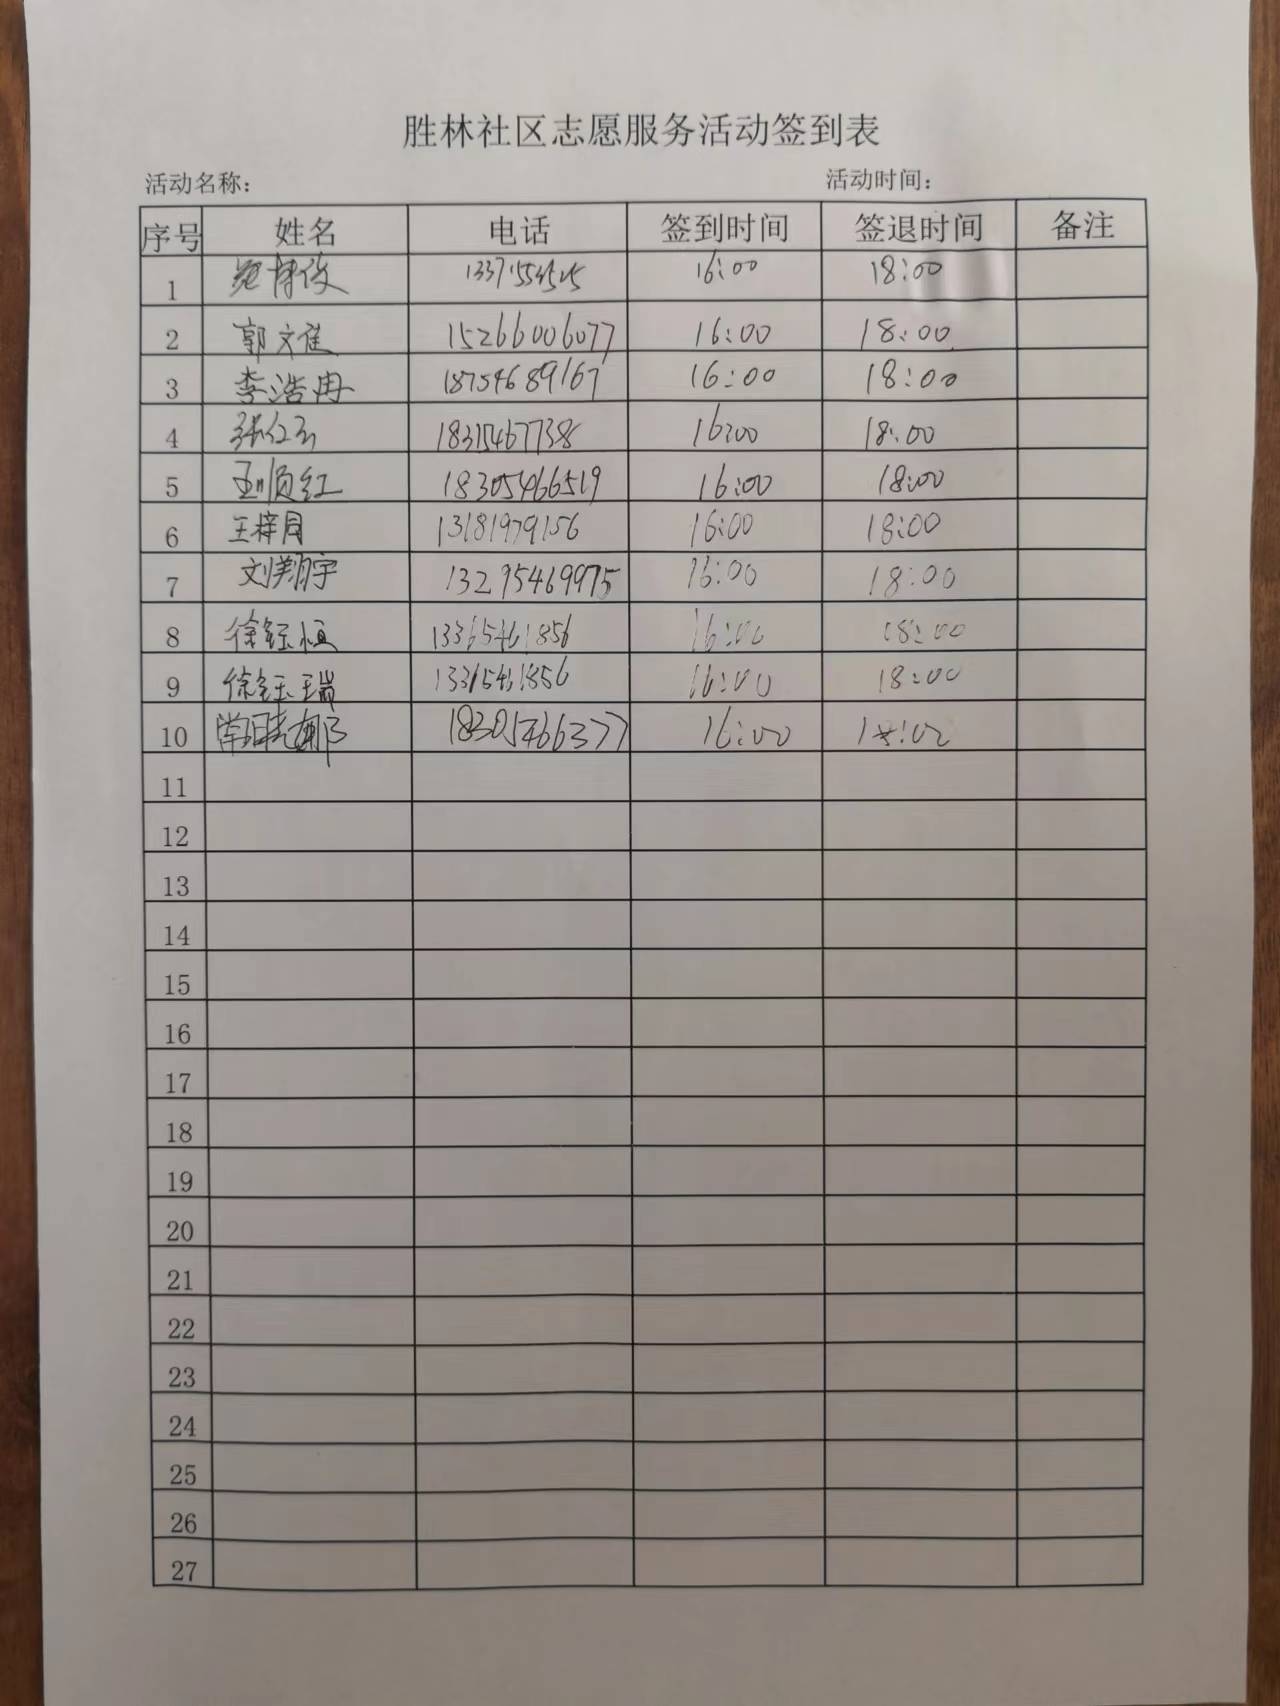 胜林社区志愿服务活动签到表
活动名称： 活动时间：
序号 姓名 电话 签到时间 签退时间 备注
1 16:00 18:00
2 郭文佳 15266006077 16:00 18:00
3 李浩冉 18754689167 16:00 18:00
4 18315467738 16:00 18:00
5 18305466519 16:00 18:00
6 王梓同 13181979156 16:00 18:00
7 刘翔宇 13295469975 16:00 18:00
8 徐钰恒 13365461856 16:00 18:00
9 徐钰瑞 13365461856 16:00 18:00
10 18305466377 16:00 18:00
11
12
13
14
15
16
17
18
19
20
21
22
23
24
25
26
27